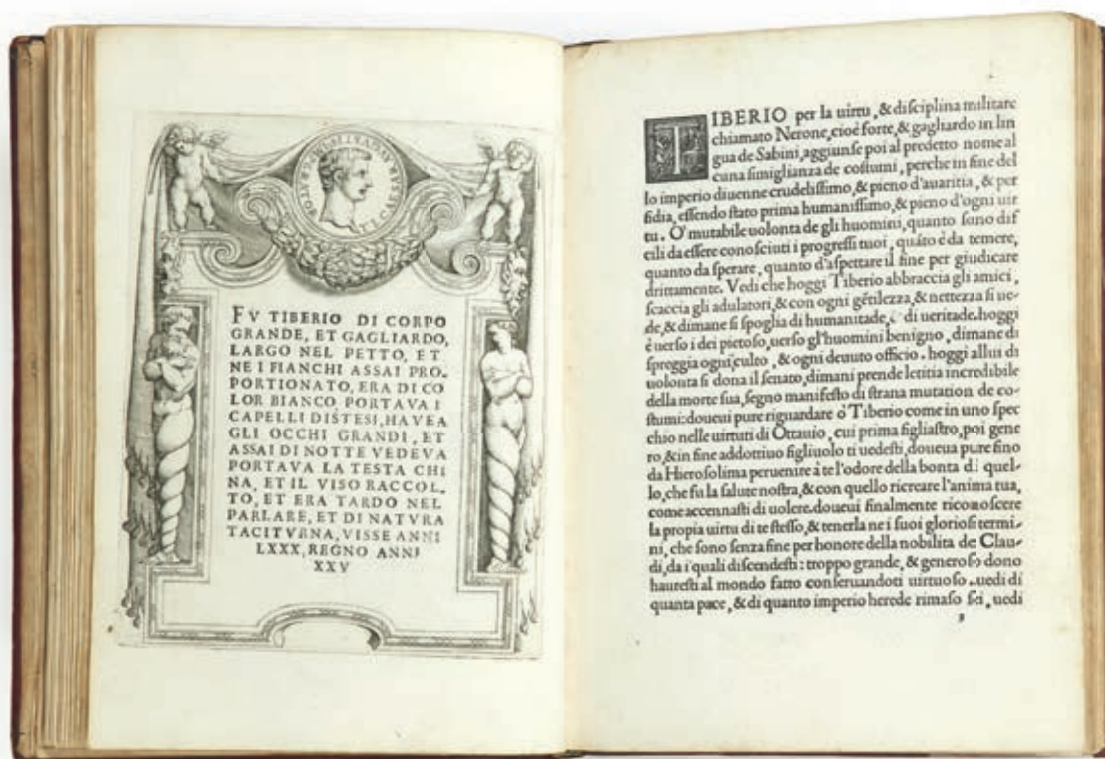 FV TIBERIO DI CORPO
GRANDE, ET GAGLIARDO,
LARGO NEL PETTO, ET
NE I FIANCHI ASSAI PRO-
PORTIONATO, ERA DI CO
LOR BIANCO PORTAVA I
CAPELLI DISTESI, HAVEA
GLI OCCHI GRANDI, ET
ASSAI DI NOTTE VEDEVA
PORTAVA LA TESTA CHI
NA, ET IL VISO RACCOL-
TO, ET ERA TARDO NEL
PARLARE, ET DI NATVRA
TACITVRNA, VISSE ANNI
LXXX, REGNO ANNI
XXV
TIBERIO per la uirtu, & disciplina militare
chiamato Nerone, cioè forte, & gagliardo in lin
gua de Sabini, aggiunse poi al predetto nome al
cuna simiglianza de costumi, perche in fine del
lo imperio diuenne crudelissimo, & pieno d'auaritia, & per
fidia, essendo stato prima humanissimo, & pieno d'ogni uir
tu. O' mutabile uolonta de gli huomini, quanto sono dif
cili da essere conosciuti i progressi tuoi, quãto è da temere,
quanto da sperare, quanto d'aspettare il fine per giudicare
drittamente. Vedi che hoggi Tiberio abbraccia gli amici,
scaccia gli adulatori, & con ogni gẽtilezza, & nettezza si ue-
de, & dimane si spoglia di humanitade, di ueritade. hoggi
è uerso i dei pietoso, uerso gl'huomini benigno, dimane di
spreggia ogni culto, & ogni deuuto officio. hoggi allui di
uolonta si dona il senato, dimani prende letitia incredibile
della morte sua, segno manifesto di strana mutation de co-
stumi: doueui pure riguardare ò Tiberio come in uno spec
chio nelle uirtuti di Ottauio, cui prima figliastro, poi gene
ro, & in fine addottiuo figliuolo ti uedesti, doueua pure fino
da Hierosolima peruenire à te l'odore della bonta di quel-
lo, che fu la salute nostra, & con quello ricreare l'anima tua,
come accennasti di uolere. doueui finalmente riconoscere
la propia uirtu di te stesso, & tenerla ne i suoi gloriosi termi-
ni, che sono senza fine per honore della nobilita de Clau-
di, da i quali discendesti: troppo grande, & generoso dono
hauresti al mondo fatto conseruandoti uirtuoso. uedi di
quanta pace, & di quanto imperio herede rimaso sei, uedi